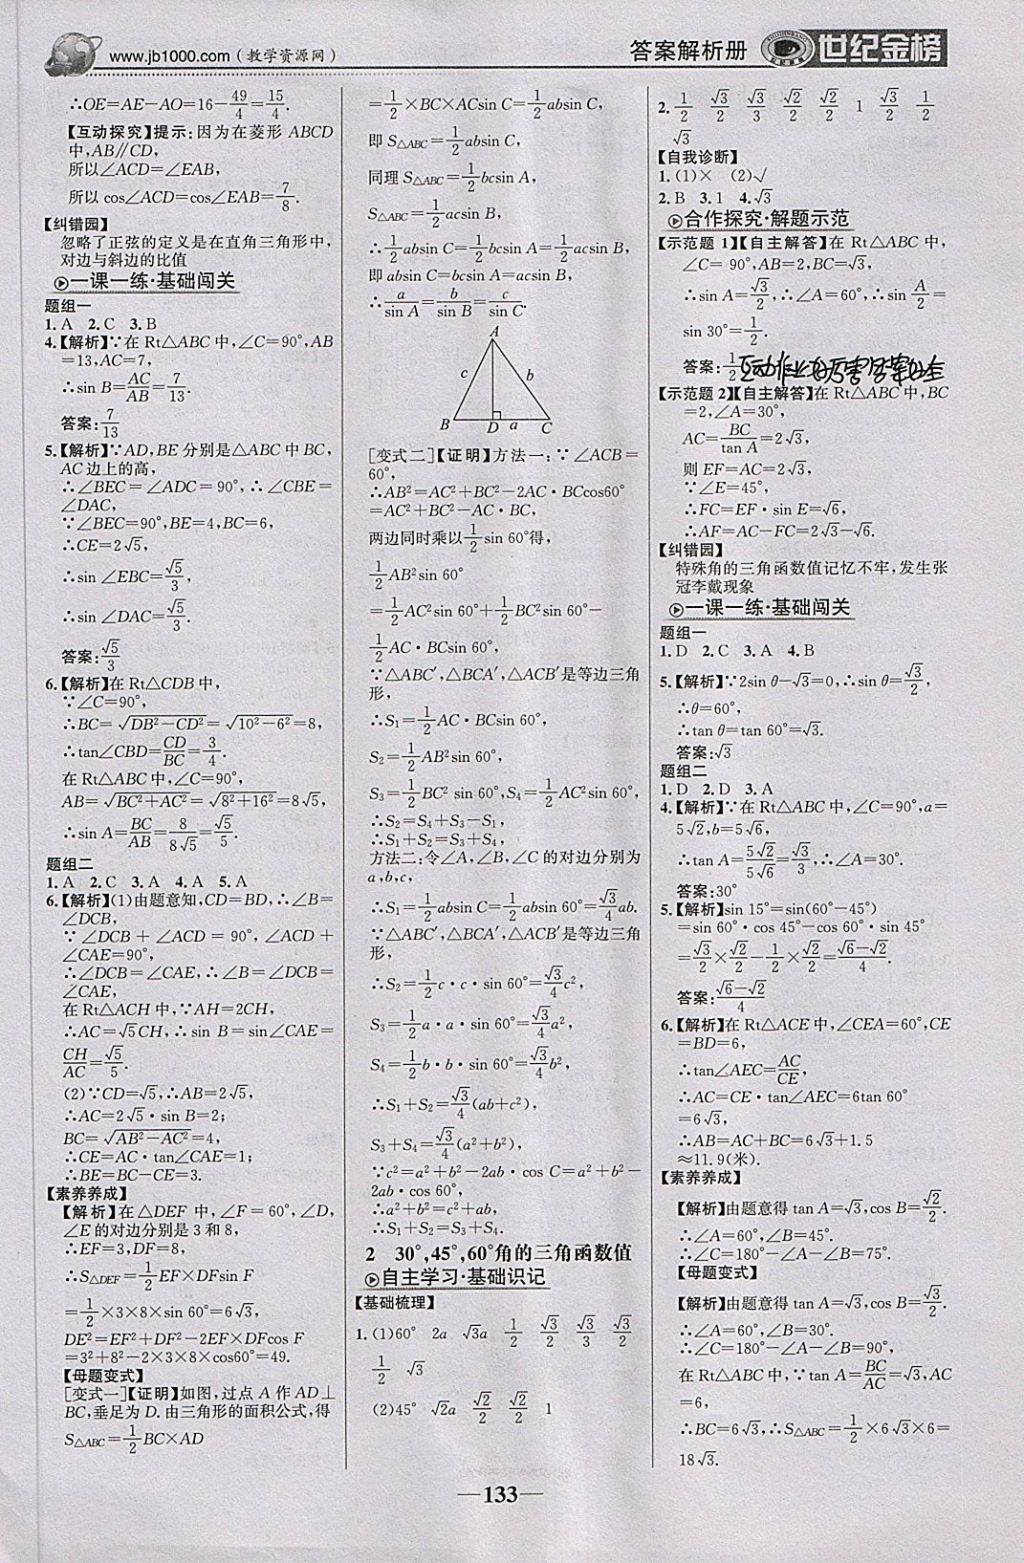 www.jb1000.com(教学资源网)
答案解析册
世纪金榜
∴OE=AE−AO=16−49/4=15/4.
【互动探究】提示:因为在菱形 ABCD
中,AB∥CD,
所以∠ACD=∠EAB,
所以 cos∠ACD=cos∠EAB=7/8.
【纠错园】
忽略了正弦的定义是在直角三角形中,
对边与斜边的比值
一课一练·基础闯关
题组一
1. A 2. C 3. B
4.【解析】∵在 Rt△ABC 中,∠C=90°,AB
=13,AC=7,
∴sin B=AC/AB=7/13.
答案:7/13
5.【解析】∵AD,BE 分别是△ABC 中 BC,
AC 边上的高,
∴∠BEC=∠ADC=90°,∴∠CBE=
∠DAC,
∵∠BEC=90°,BE=4,BC=6,
∴CE=2√5,
∴sin ∠EBC=√5/3,
∴sin ∠DAC=√5/3.
答案:√5/3
6.【解析】在 Rt△CDB 中,
∵∠C=90°,
∴BC=√(DB²−CD²)=√(10²−6²)=8,
∴tan∠CBD=CD/BC=3/4.
在 Rt△ABC 中,∠C=90°,
AB=√(BC²+AC²)=√(8²+16²)=8√5,
∴sin A=BC/AB=8/(8√5)=√5/5.
题组二
1. A 2. C 3. A 4. A 5. A
6.【解析】(1)由题意知,CD=BD,∴∠B=
∠DCB,
∵∠DCB+∠ACD=90°,∠ACD+
∠CAE=90°,
∴∠DCB=∠CAE,∴∠B=∠DCB=
∠CAE,
在 Rt△ACH 中,∵AH=2CH,
∴AC=√5CH,∴sin B=sin∠CAE=
CH/AC=√5/5.
(2)∵CD=√5,∴AB=2√5,
∴AC=2√5·sin B=2;
BC=√(AB²−AC²)=4,
∴CE=AC·tan∠CAE=1;
∴BE=BC−CE=3.
【素养养成】
【解析】在△DEF 中,∠F=60°,∠D,
∠E 的对边分别是 3 和 8,
∴EF=3,DF=8,
∴S△DEF=1/2EF×DFsin F
=1/2×3×8×sin 60°=6√3,
DE²=EF²+DF²−2EF×DFcos F
=3²+8²−2×3×8×cos60°=49.
【母题变式】
[变式一]【证明】如图,过点 A 作 AD⊥
BC,垂足为 D.由三角形的面积公式,得
S△ABC=1/2BC×AD
=1/2×BC×ACsin C=1/2absin C,
即 S△ABC=1/2absin C,
同理 S△ABC=1/2bcsin A,
S△ABC=1/2acsin B,
∴1/2absin C=1/2bcsin A=1/2acsin B,
即 absin C=bcsin A=acsin B,
∴a/sin A=b/sin B=c/sin C.
A
c b
B D a C
[变式二]【证明】方法一:∵∠ACB=
60°,
∴AB²=AC²+BC²−2AC·BCcos60°
=AC²+BC²−AC·BC,
两边同时乘以1/2sin 60°得,
1/2AB²sin 60°
=1/2AC²sin 60°+1/2BC²sin 60°−
1/2AC·BCsin 60°,
∵△ABC′,△BCA′,△ACB′是等边三角
形,
∴S₁=1/2AC·BCsin 60°,
S₂=1/2AB²sin 60°,
S₃=1/2BC² sin 60°,S₄=1/2AC²sin 60°,
∴S₂=S₄+S₃−S₁,
∴S₁+S₂=S₃+S₄.
方法二:令∠A,∠B,∠C 的对边分别为
a,b,c,
∴S₁=1/2absin C=1/2absin 60°=√3/4ab.
∵△ABC′,△BCA′,△ACB′是等边三角
形,
∴S₂=1/2c·c·sin 60°=√3/4c²,
S₃=1/2a·a·sin 60°=√3/4a²,
S₄=1/2b·b·sin 60°=√3/4b²,
∴S₁+S₂=√3/4(ab+c²),
S₃+S₄=√3/4(a²+b²),
∵c²=a²+b²−2ab·cos C=a²+b²−
2ab·cos 60°,
∴a²+b²=c²+ab,
∴S₁+S₂=S₃+S₄.
2 30°,45°,60°角的三角函数值
自主学习·基础识记
【基础梳理】
1. (1)60° 2a √3a 1/2 √3/2 √3/3 √3/2
1/2 √3
(2)45° √2a √2/2 √2/2 1
2. 1/2 √3/2 √3/3 √2/2 √2/2 1 √3/2 1/2
√3
【自我诊断】
1. (1)× (2)√
2. B 3. 1 4. √3
合作探究·解题示范
【示范题 1】【自主解答】在 Rt△ABC 中,
∠C=90°,AB=2,BC=√3,
∴sin A=√3/2,∴∠A=60°,∴sin A/2=
sin 30°=1/2.
答案:1/2
【示范题 2】【自主解答】在 Rt△ABC 中,BC
=2,∠A=30°,
AC=BC/tan A=2√3,
则 EF=AC=2√3,
∵∠E=45°,
∴FC=EF·sin E=√6,
∴AF=AC−FC=2√3−√6.
【纠错园】
特殊角的三角函数值记忆不牢,发生张
冠李戴现象
一课一练·基础闯关
题组一
1. D 2. C 3. A 4. B
5.【解析】∵2sin θ−√3=0,∴sin θ=√3/2,
∴θ=60°,
∴tan θ=tan 60°=√3.
答案:√3
题组二
1. D 2. D 3. A
4.【解析】∵在 Rt△ABC 中,∠C=90°,a=
5√2,b=5√6,
∴tan A=5√2/5√6=√3/3,∴∠A=30°.
答案:30°
5.【解析】sin 15°=sin(60°−45°)
=sin 60°·cos 45°−cos 60°·sin 45°
=√3/2×√2/2−1/2×√2/2=(√6−√2)/4.
答案:(√6−√2)/4
6.【解析】在 Rt△ACE 中,∠CEA=60°,CE
=BD=6,
∴tan∠AEC=AC/CE,
∴AC=CE·tan∠AEC=6tan 60°
=6√3,
∴AB=AC+BC=6√3+1.5
≈11.9(米).
【素养养成】
【解析】由题意得 tan A=√3,cos B=√2/2.
∴∠A=60°,∠B=45°.
∴∠C=180°−∠A−∠B=75°.
【母题变式】
【解析】由题意得 tan A=√3,cos B=√3/2.
∴∠A=60°,∠B=30°.
∴∠C=180°−∠A−∠B=90°.
在 Rt△ABC 中,∵tan A=BC/AC=√3,AC
=6,
∴BC=6√3,∴S△ABC=1/2×6√3×6=
18√3.
—133—